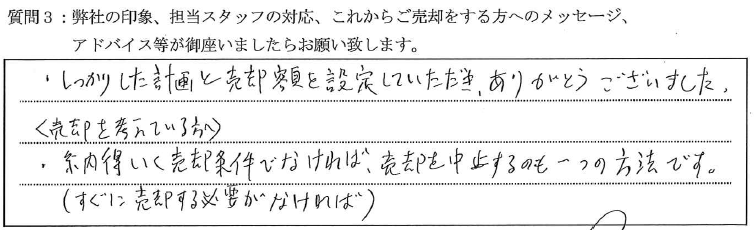 質問3：弊社の印象、担当スタッフの対応、これからご売却をする方へのメッセージ、
アドバイス等が御座いましたらお願い致します。
・しっかりした計画と売却額を設定していただき、ありがとうございました。
〈売却を考えている方へ〉
・納得いく売却条件でなければ、売却を中止するのも一つの方法です。
(すぐに売却する必要がなければ)